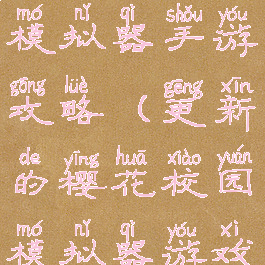 mó nǐ qì shǒu yóu
模拟器手游
gōng lüè gēng xīn
攻略（更新
de yīng huā xiào yuán
的樱花校园
mó nǐ qì yóu xì
模拟器游戏